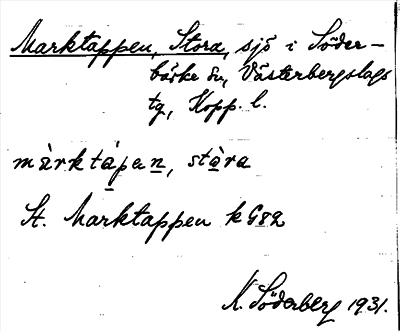 Marktappen, Stora, sjö i Söder-
bärke sn, Västerbergslags
tg, Kopp. l.
màrktápen, stòra
St. Marktappen kG82
K. Söderberg 1931.